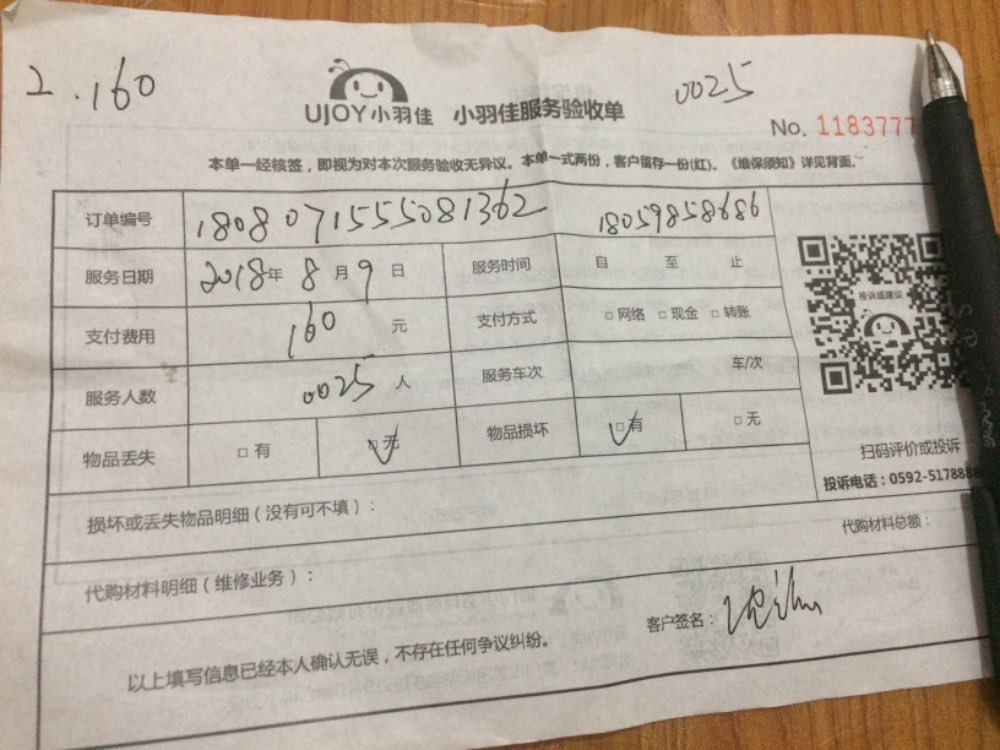 2.160
0025
UJOY小羽佳 小羽佳服务验收单
No. 1183777
本单一经核签，即视为对本次服务验收无异议。本单一式两份，客户留存一份(红)。《维保须知》详见背面。
订单编号 1808071555081362 18059858686
服务日期 2018年 8月 9日 服务时间 自 至 止
支付费用 160 元 支付方式 □网络 □现金 □转账
服务人数 0025 人 服务车次 车/次
物品丢失 □有 □无 物品损坏 □有 □无
投诉或建议
扫码评价或投诉
投诉电话：0592-5178888
损坏或丢失物品明细（没有可不填）：
代购材料总额：
代购材料明细（维修业务）：
客户签名：
以上填写信息已经本人确认无误，不存在任何争议纠纷。